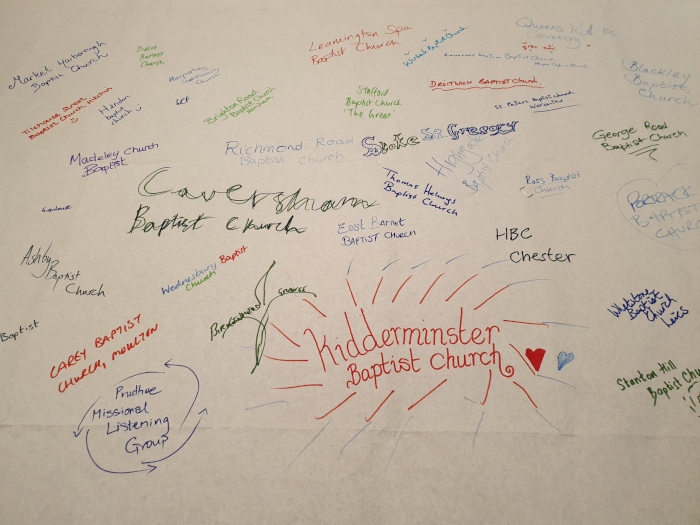 Market Harborough
Baptist Church
Baptist
Church
Leamington Spa
Baptist Church
Baptist Church
Queens Rd BC
Coventry
Blackley
Baptist
Church
Tilehouse Street
Baptist Church, Hitchin
Baptist
church :)
LCF
Brighton Road
Baptist Church
Horsham
Stafford
Baptist Church
The Green
DROITWICH BAPTIST CHURCH
Baptist Church
George Road
Baptist Church
Madeley Church
Baptist
Richmond Road
Baptist Church
Stoke St Gregory
Highgate
Baptist Church
Caversham
Baptist Church
Thomas Helwys
Baptist Church
Ross Baptist
Church
BAPTIST
CHURCH
East Barnet
BAPTIST CHURCH
HBC
Chester
Ashby
Baptist
Church
Wednesbury Baptist
Church
Whetstone
Baptist
Church
Leics
Baptist
BIRKENHEAD
GRANGE
CAREY BAPTIST
CHURCH, MOULTON
Kidderminster
Baptist Church
Stanton Hill
Baptist Church
Prudhoe
Missional
Listening
Group